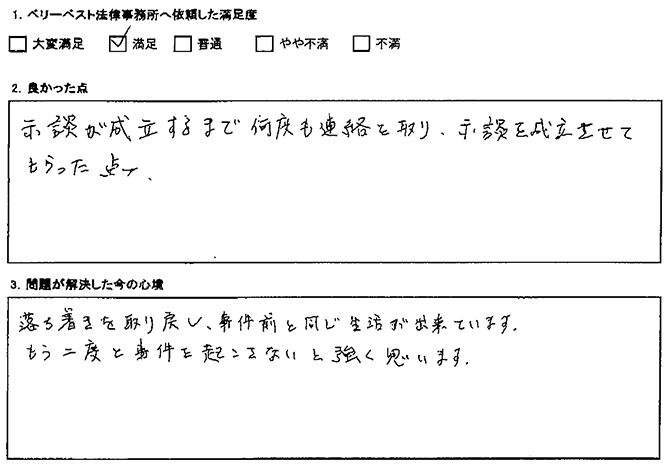 1. ベリーベスト法律事務所へ依頼した満足度
□ 大変満足 ☑ 満足 □ 普通 □ やや不満 □ 不満
2. 良かった点
示談が成立するまで何度も連絡を取り、示談を成立させて
もらった点、
3. 問題が解決した今の心境
落ち着きを取り戻し、事件前と同じ生活が出来ています。
もう二度と事件を起こさないと強く思います。